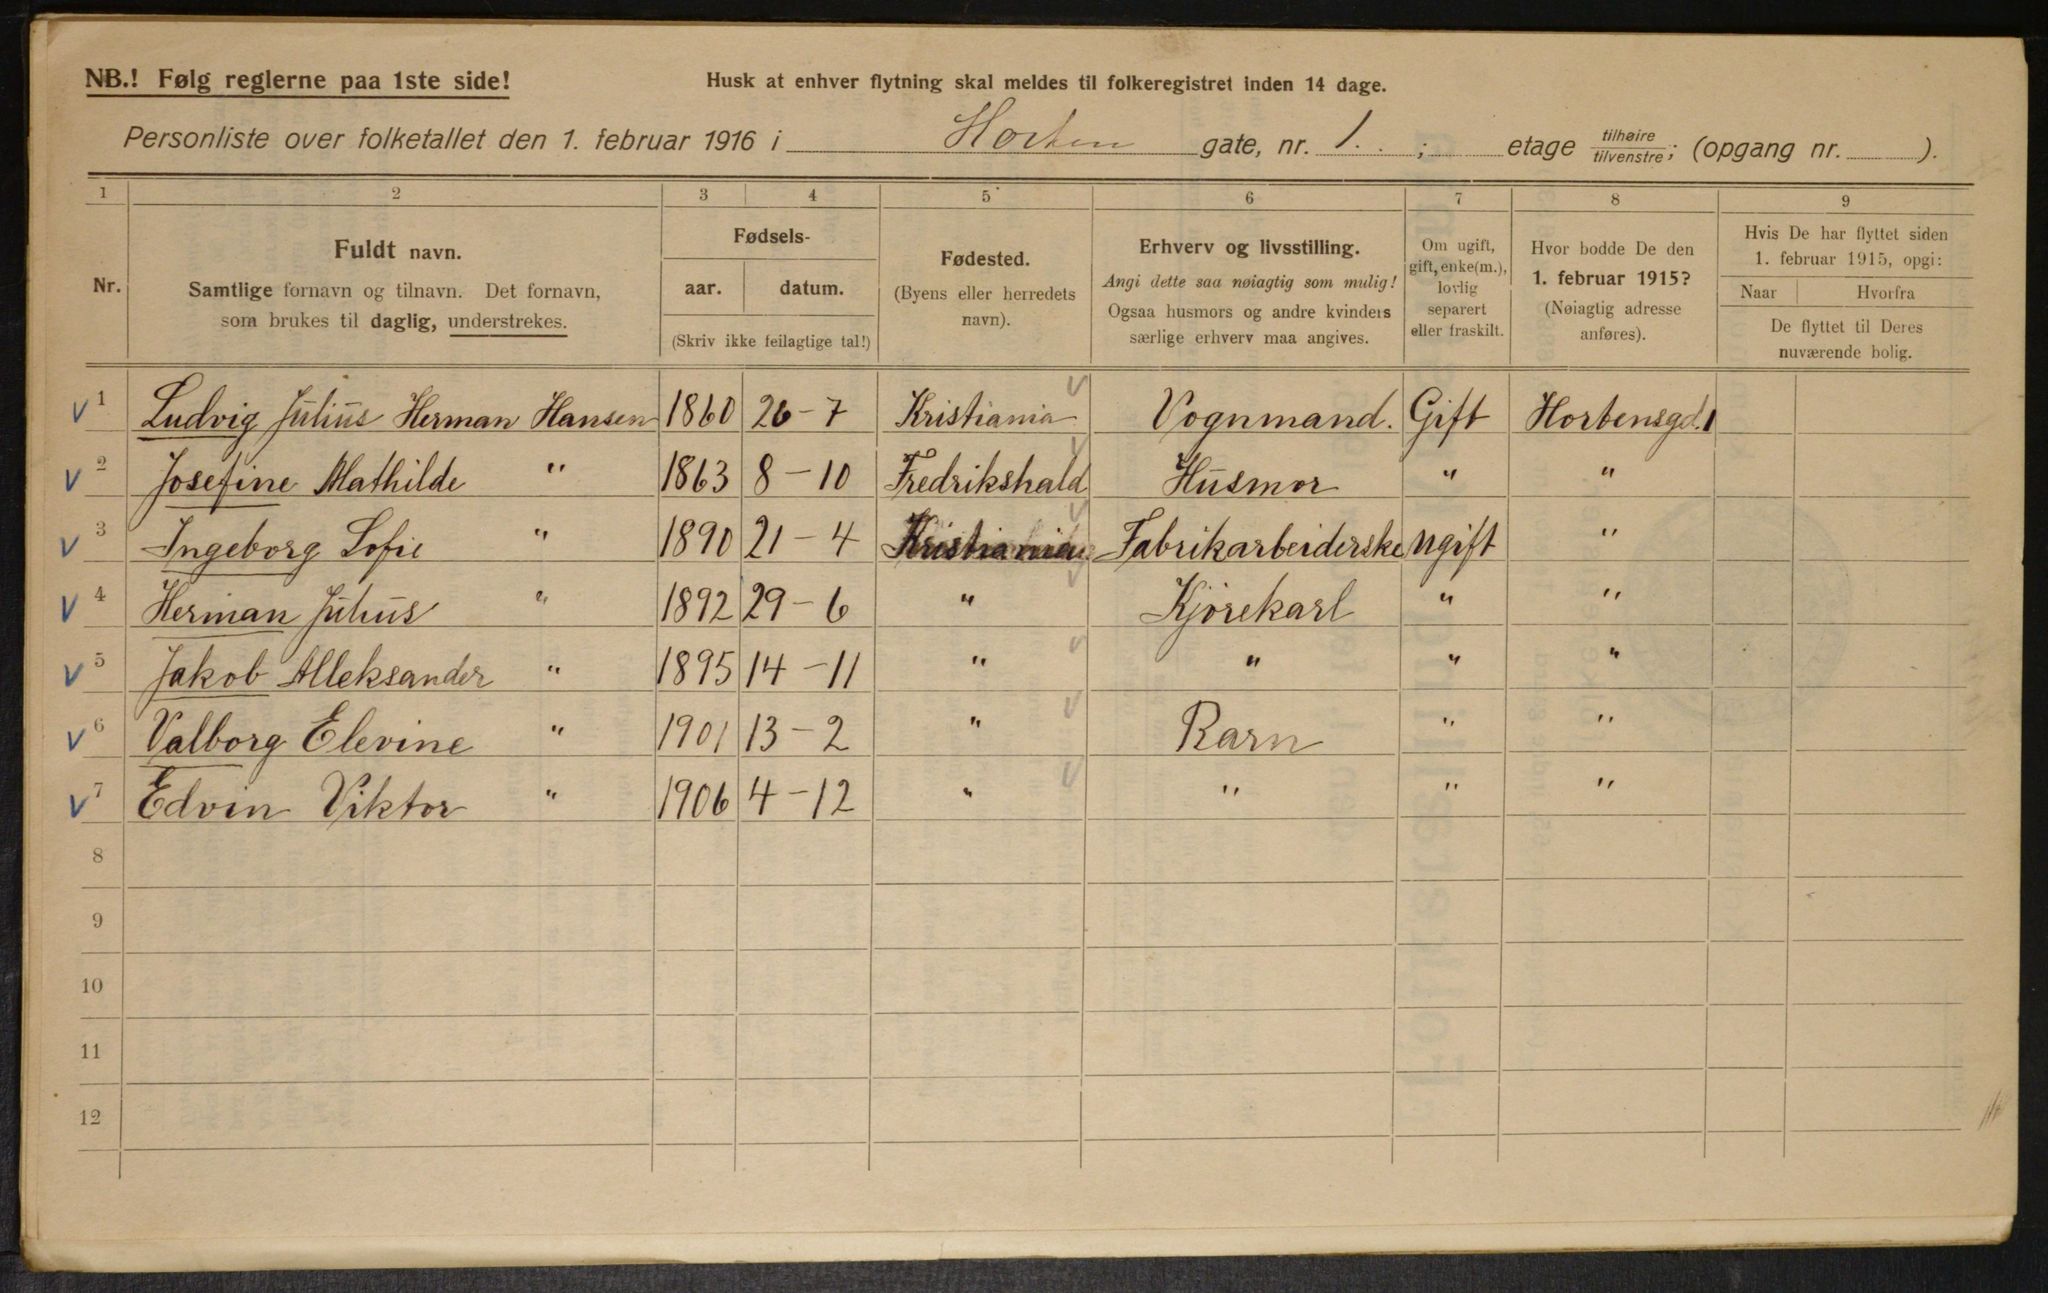 NB.! Følg reglerne paa 1ste side!
Husk at enhver flytning skal meldes til folkeregistret inden 14 dage.
Personliste over folketallet den 1. februar 1916 i Horten gate, nr. 1. ; etage tilhøire/tilvenstre; (opgang nr. ).
1 2 3 4 5 6 7 8 9
Nr.
Fuldt navn.
Samtlige fornavn og tilnavn. Det fornavn,
som brukes til daglig, understrekes.
Fødsels-
aar. datum.
(Skriv ikke feilagtige tal!)
Fødested.
(Byens eller herredets
navn).
Erhverv og livsstilling.
Angi dette saa nøiagtig som mulig!
Ogsaa husmors og andre kvinders
særlige erhverv maa angives.
Om ugift,
gift, enke(m.),
lovlig
separert
eller fraskilt.
Hvor bodde De den
1. februar 1915?
(Nøiagtig adresse
anføres).
Hvis De har flyttet siden
1. februar 1915, opgi:
Naar Hvorfra
De flyttet til Deres
nuværende bolig.
V 1 Ludvig Julius Herman Hansen 1860 26-7 Kristiania Vognmand. Gift Hortensgd. 1
V 2 Josefine Mathilde " 1863 8-10 Fredrikshald Husmor " "
V 3 Ingeborg Sofie " 1890 21-4 Kristiania Fabrikarbeiderske Ugift "
V 4 Herman Julius " 1892 29-6 " Kjørekarl " "
V 5 Jakob Alleksander " 1895 14-11 " " " "
V 6 Valborg Elevine " 1901 13-2 " Barn " "
V 7 Edvin Viktor " 1906 4-12 " " " "
8
9
10
11
12